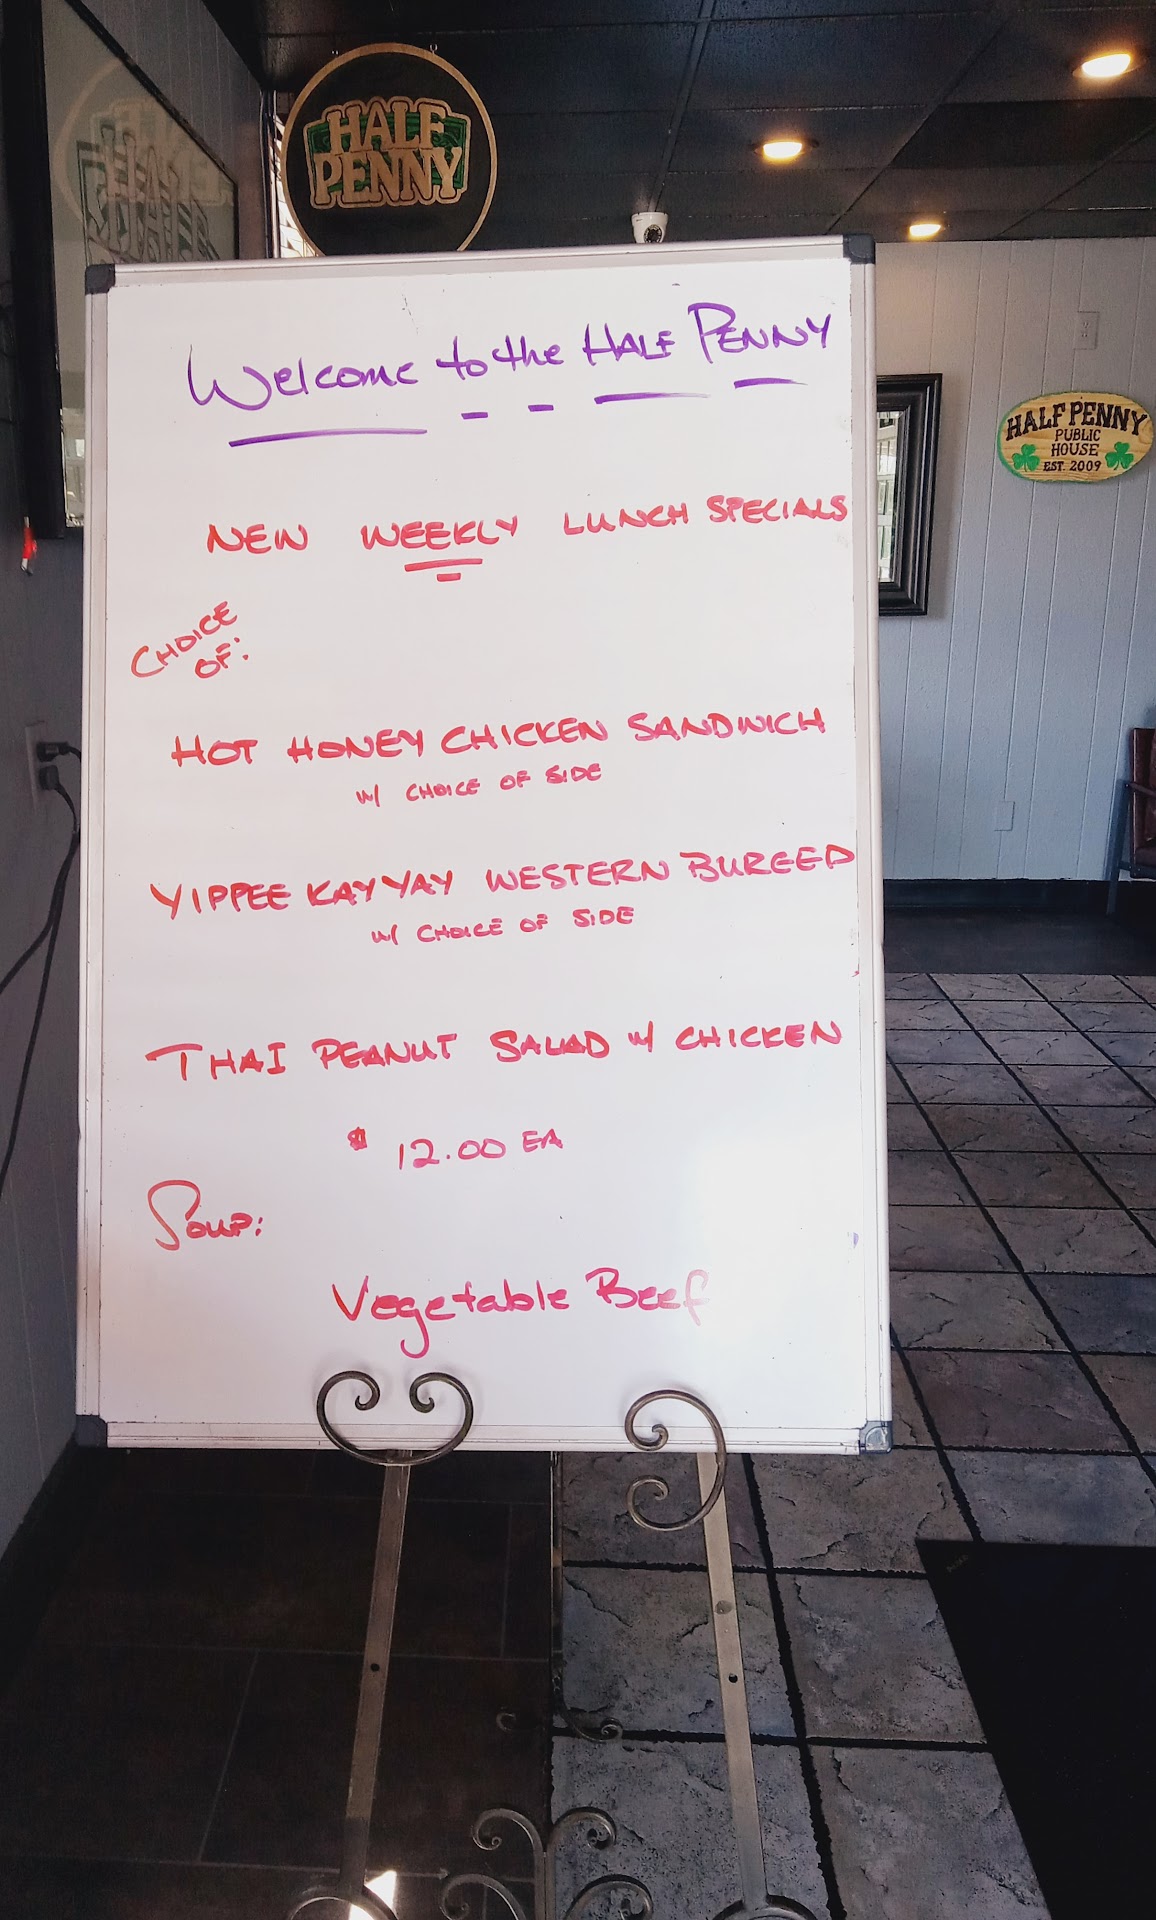 HALF
PENNY
Welcome to the HALF PENNY
HALF PENNY
PUBLIC
HOUSE
EST. 2009
NEW WEEKLY LUNCH SPECIALS
CHOICE
OF:
HOT HONEY CHICKEN SANDWICH
w/ CHOICE OF SIDE
YIPPEE KAY YAY WESTERN BURGER
w/ CHOICE OF SIDE
THAI PEANUT SALAD w/ CHICKEN
$ 12.00 EA
Soup:
Vegetable Beef